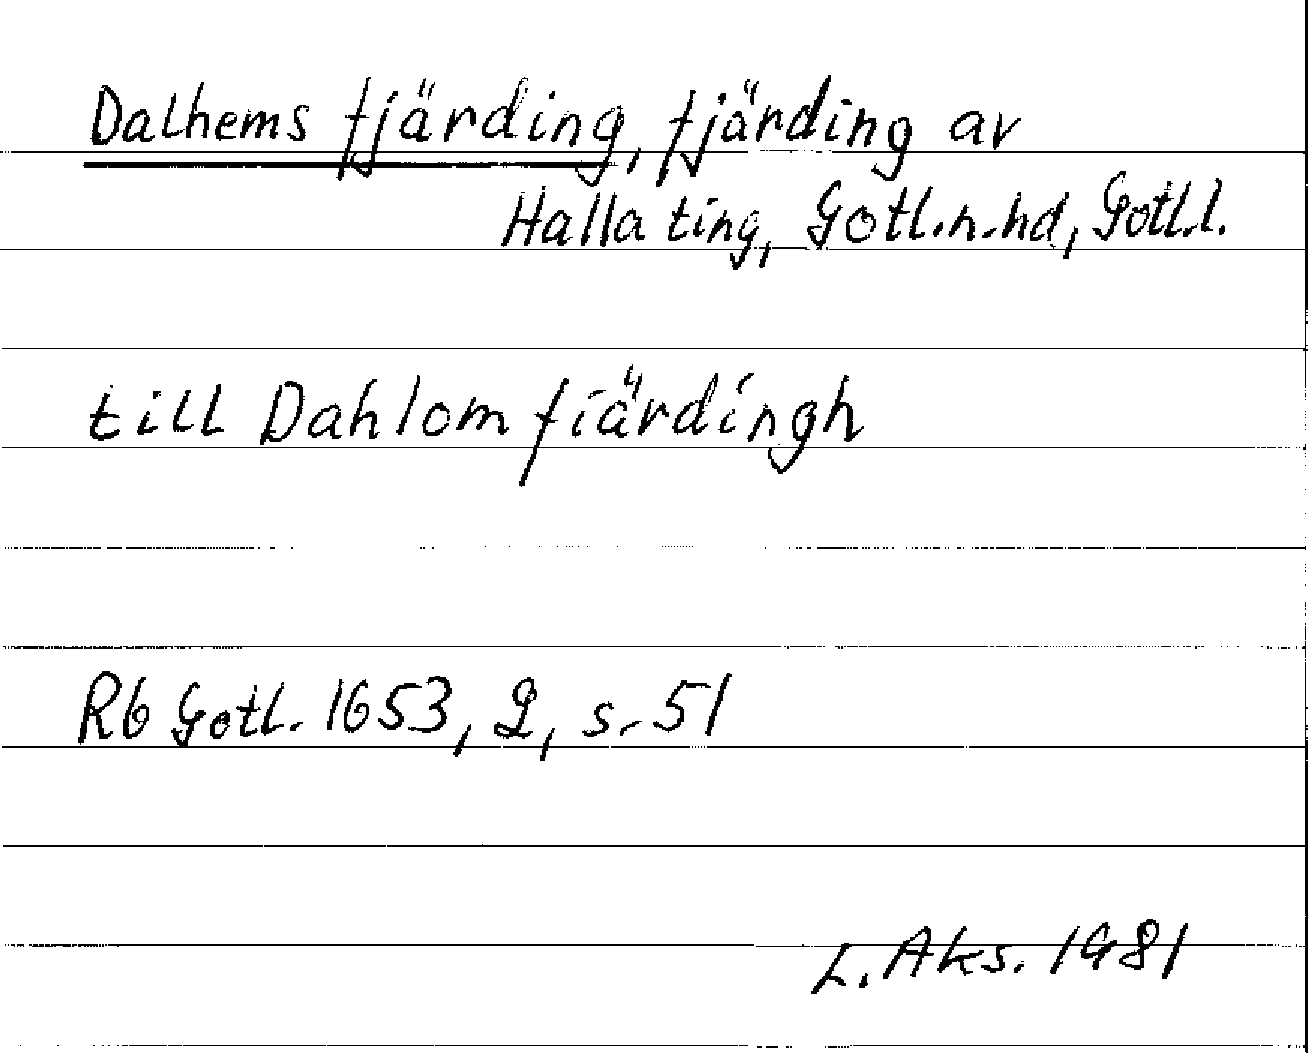 Dalhems fjärding, fjärding av
Halla ting, Gotl.n.hd, Gotl.l.
till Dahlom fiärdingh
Rb Gotl. 1653, 2, s. 51
L. Aks. 1981